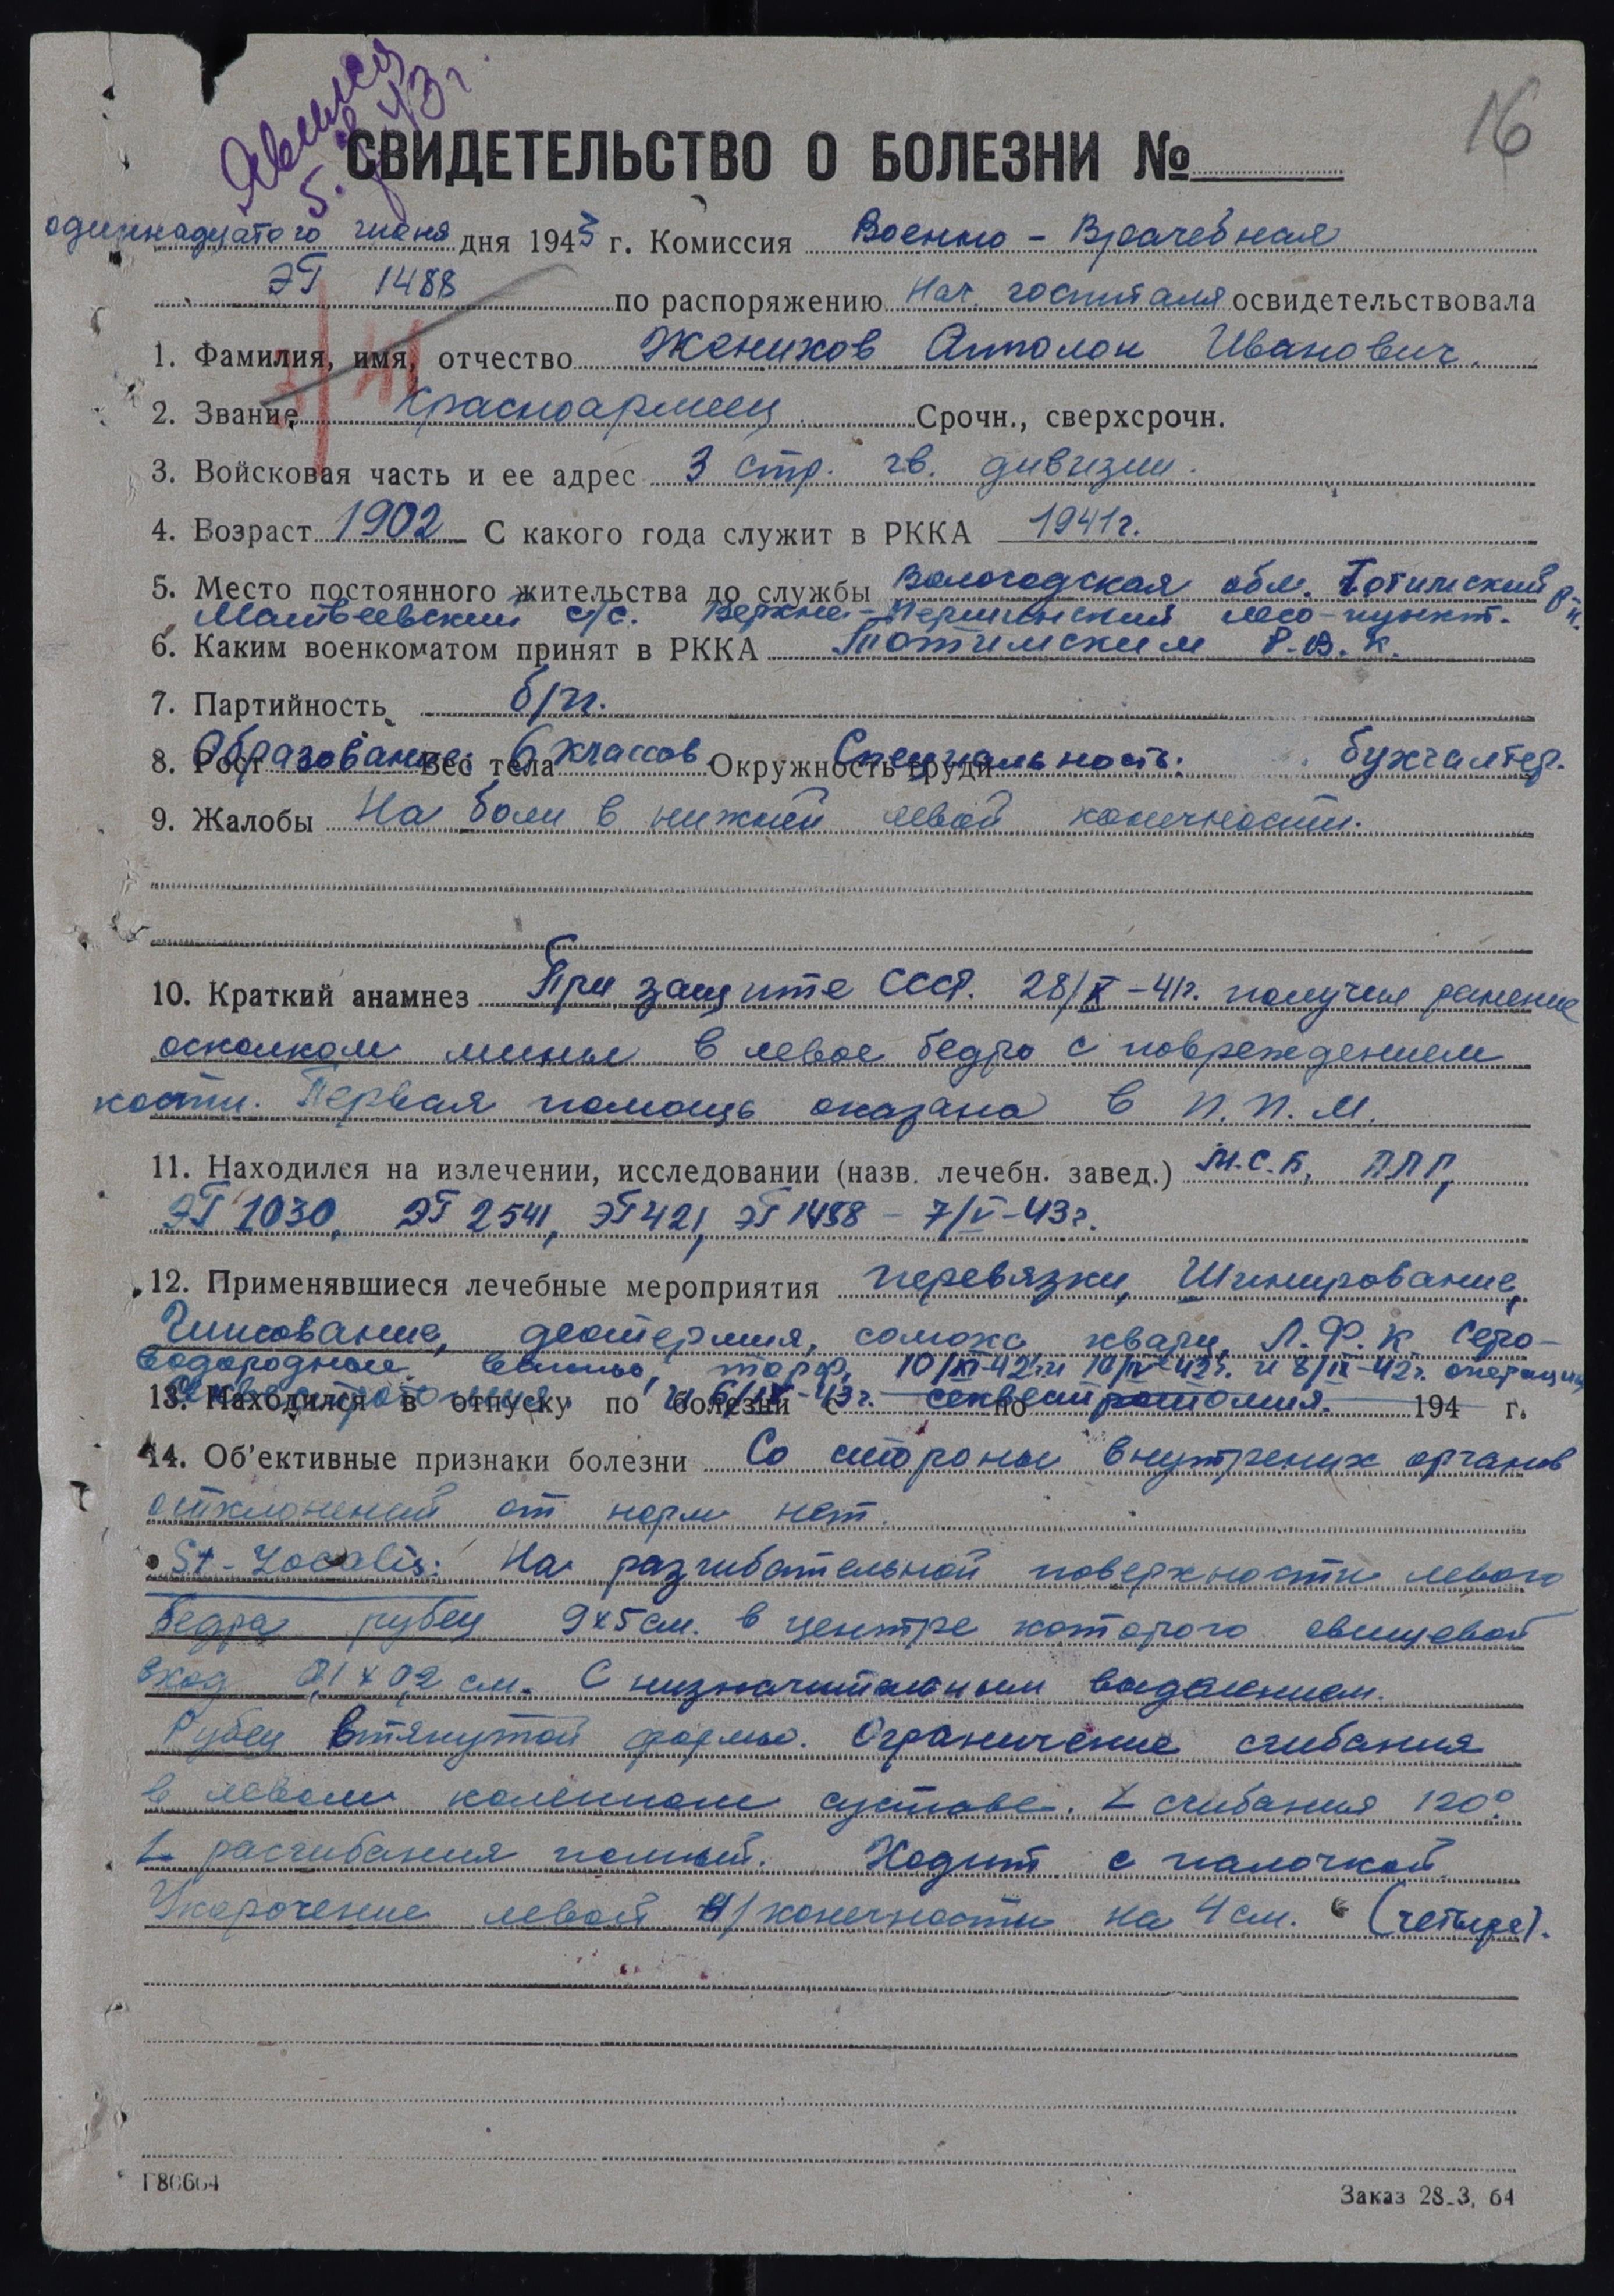 16
Явился
5. 43 г.
СВИДЕТЕЛЬСТВО О БОЛЕЗНИ №
одиннадцатого июня дня 1943 г. Комиссия Военно - Врачебная
ЭГ 1488 по распоряжению Нач. госпиталя освидетельствовала
1. Фамилия, имя, отчество Женихов Апполон Иванович.
2. Звание красноармеец Срочн., сверхсрочн.
3. Войсковая часть и ее адрес 3 стр. гв. дивизии.
4. Возраст 1902 С какого года служит в РККА 1941г.
5. Место постоянного жительства до службы Вологодская обл. Тотимский р-н.
Матвеевский с/с. Верхне - лесо-пункт.
6. Каким военкоматом принят в РККА Тотимским Р.В.К.
7. Партийность б/п.
8. Рост Вес тела Окружность груди
Образование: 6 классов Специальность: бухгалтер.
9. Жалобы На боли в нижней левой конечности.
10. Краткий анамнез При защите СССР. 28/X-41г. получил ранение
осколком мины в левое бедро с повреждением
кости. Первая помощь оказана в П.П.М.
11. Находился на излечении, исследовании (назв. лечебн. завед.) М.С.Б, ППГ,
ЭГ 1030, ЭГ 2541, ЭГ 421, ЭГ 1488 - 7/V-43г.
12. Применявшиеся лечебные мероприятия перевязки, Шинирование,
Гипсование, диатермия, соллюкс кварц, Л.Ф.К. Серо-
водородные ванны, торф, 10/XI-42г. и 10/IV-42г. и 8/IX-42г. операции
13. Находился в отпуску по болезни с по 194 г.
и 6/ -43г. секвестротомия.
14. Об'ективные признаки болезни Со стороны внутрених органов
отклонений от норм нет.
St-Localis: На разгибательной поверхности левого
бедра рубец 9х5см. в центре которого свищевой
вход 0,1 х 0,2 см. С незначительным выделением.
Рубец втянутой формы. Ограничение сгибания
в левом коленном суставе. ∠ сгибания 120°
∠ расгибания полный. Ходит с палочкой.
Укорочение левой н/конечности на 4см. (четыре).
Г80664
Заказ 28-3, 64